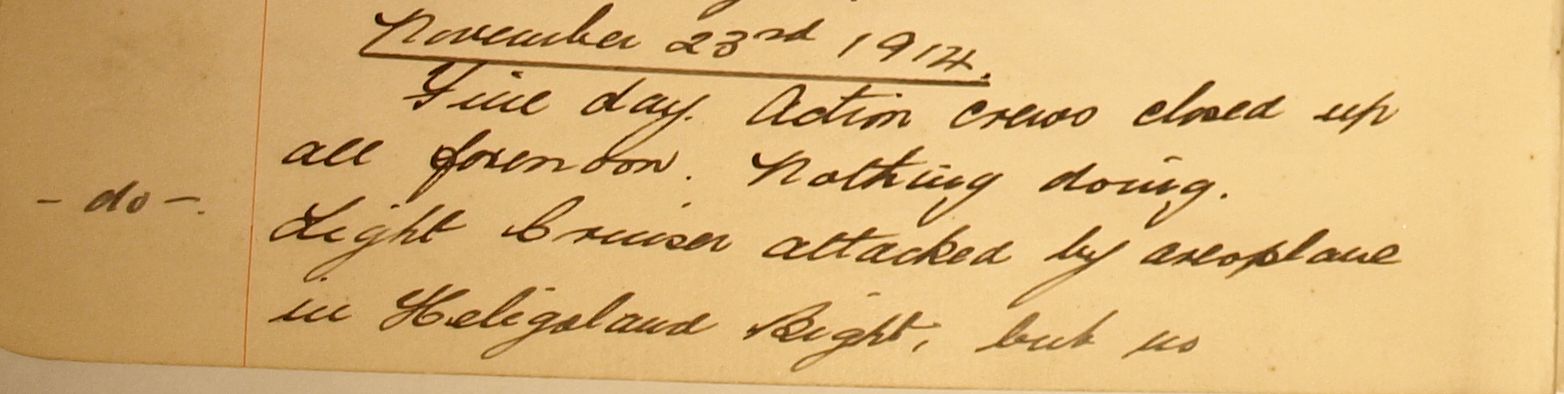 November 23rd 1914.
Fine day. Action crews closed up
all forenoon. Nothing doing.
- do -.
Light Cruiser attacked by areoplane
in Heligoland Bight, but no